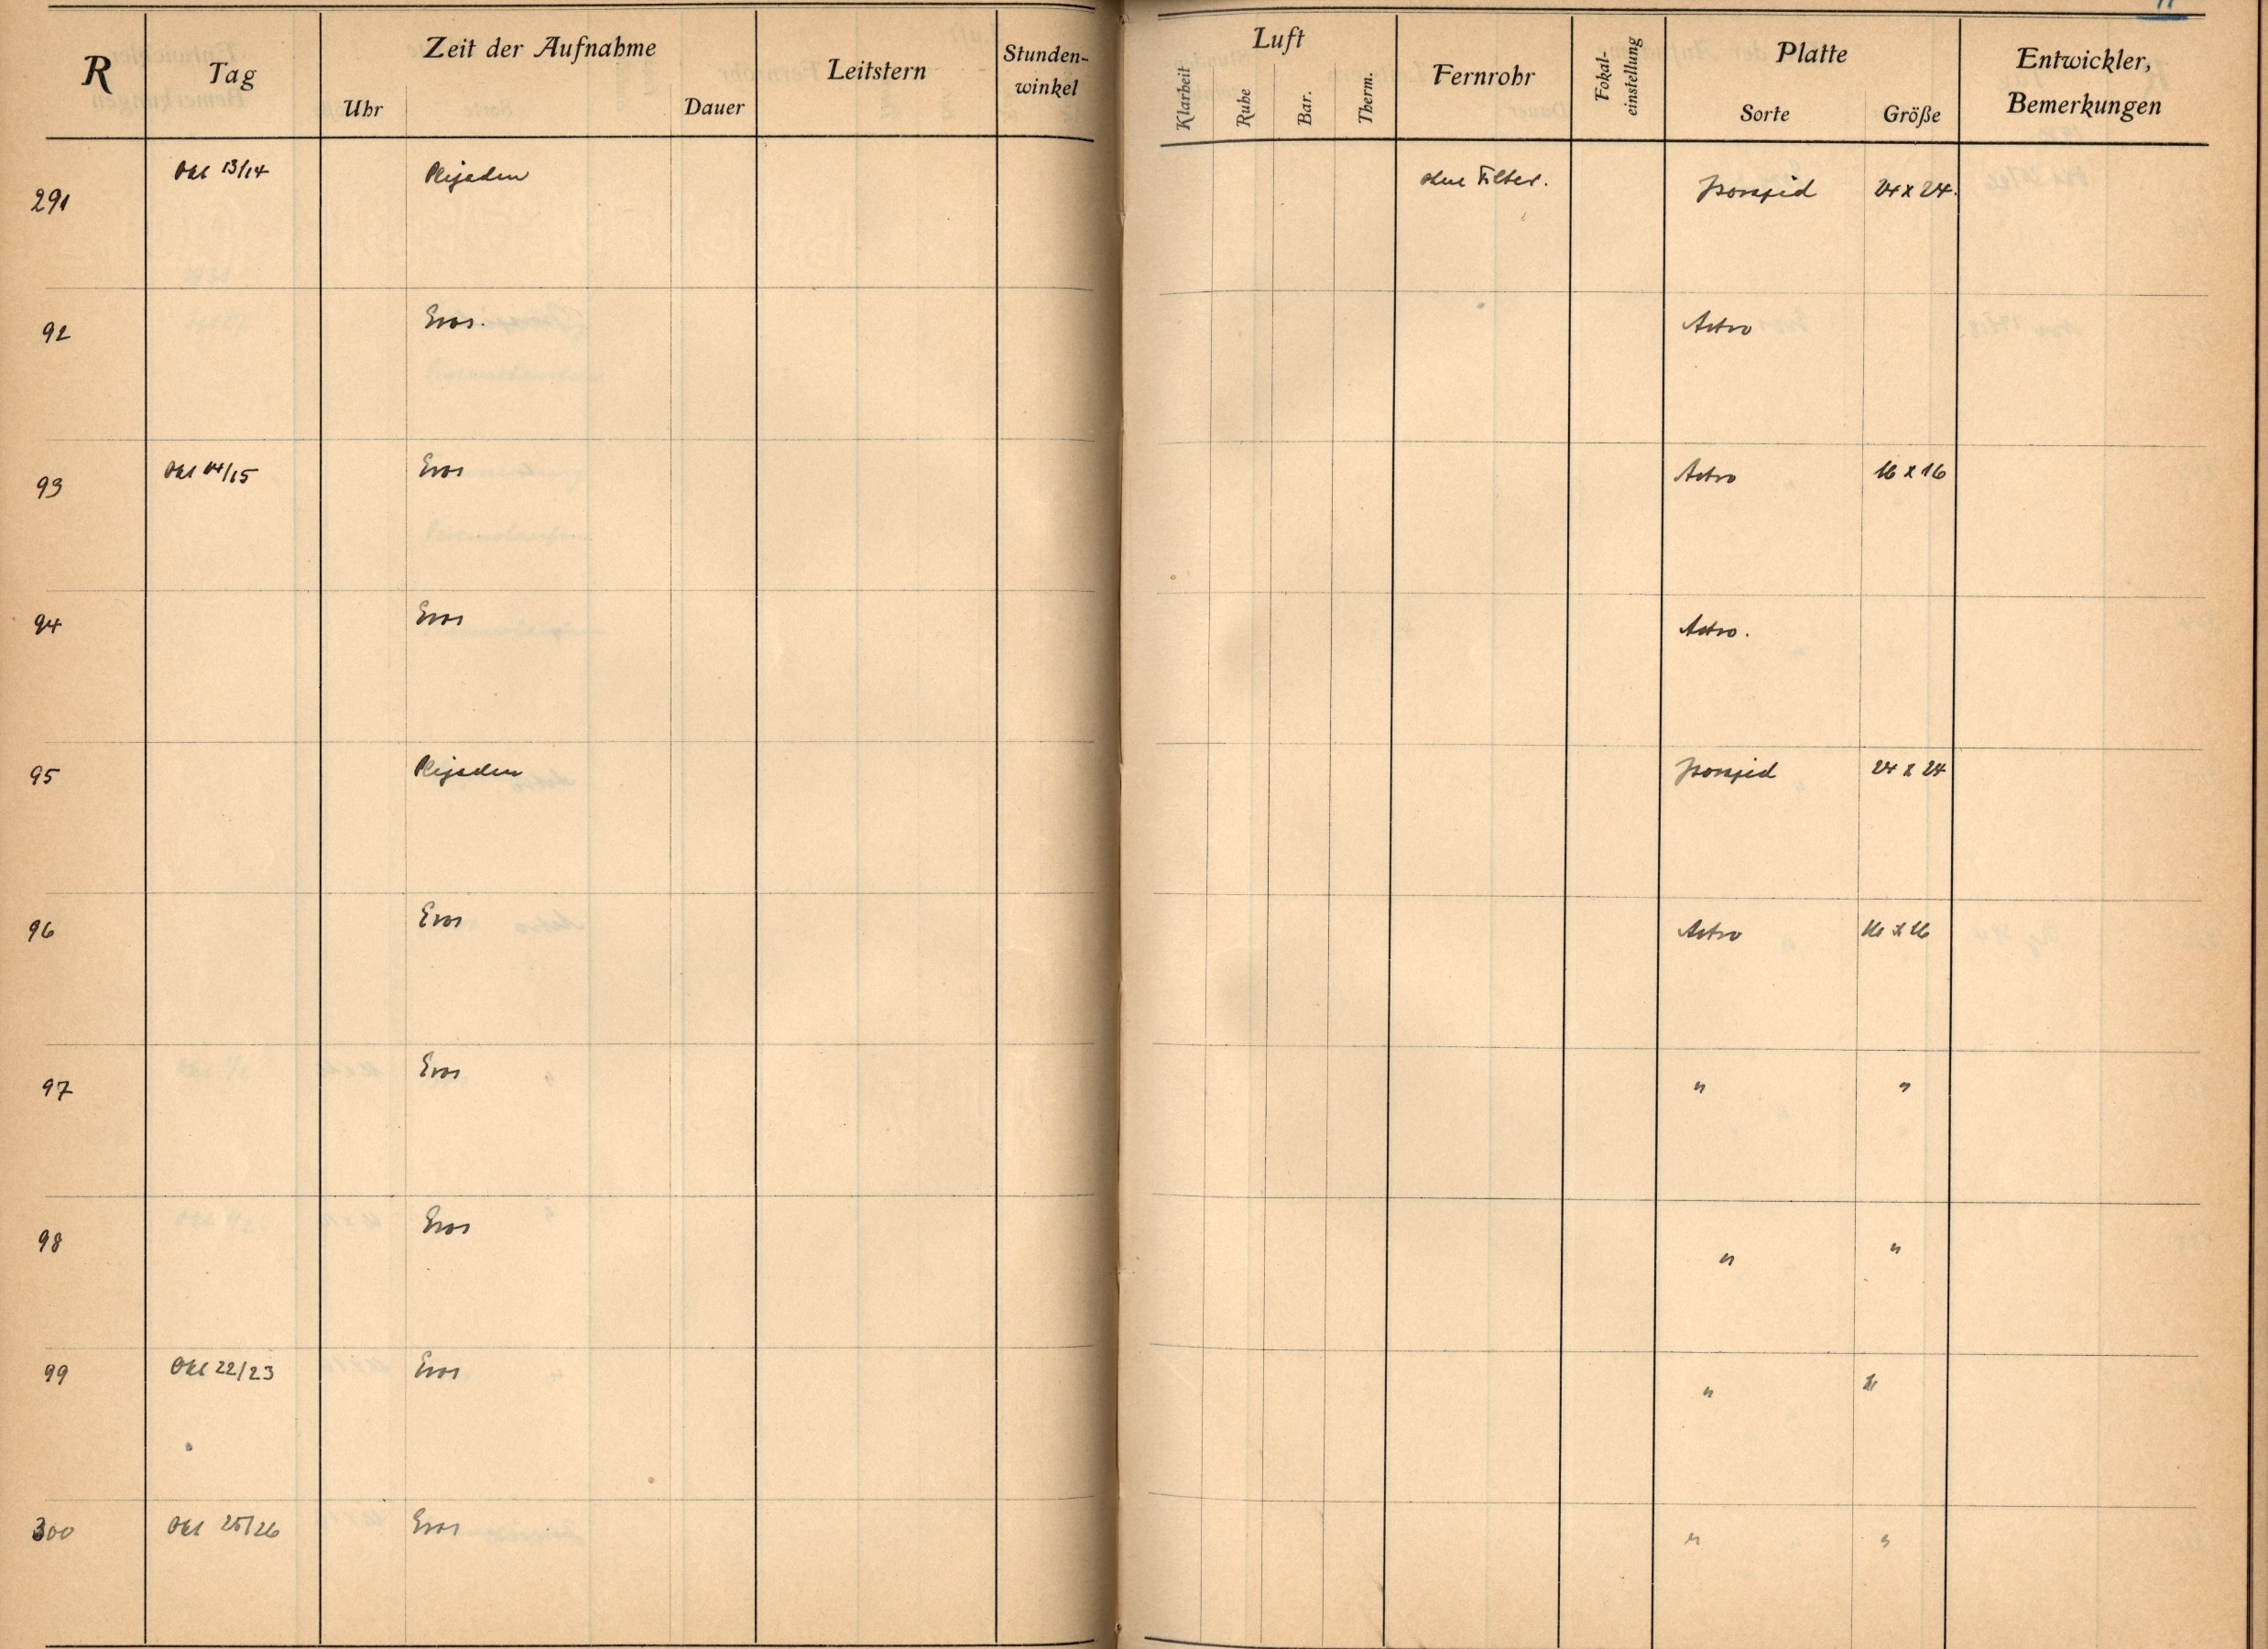 R Tag Zeit der Aufnahme Leitstern Stunden-winkel Luft Fernrohr Fokal-einstellung Platte Entwickler, Bemerkungen
Uhr Dauer Klarheit Ruhe Bar. Therm. Sorte Größe
291 Okt 13/14 Plejaden ohne Filter. Isorapid 24 x 24.
92 Eros. Astro
93 Okt 14/15 Eros Astro 16 x 16
94 Eros Astro.
95 Plejaden Isorapid 24 x 24
96 Eros Astro 16 x 16
97 Eros " "
98 Eros " "
99 Okt 22/23 Eros " "
300 Okt 25/26 Eros " "